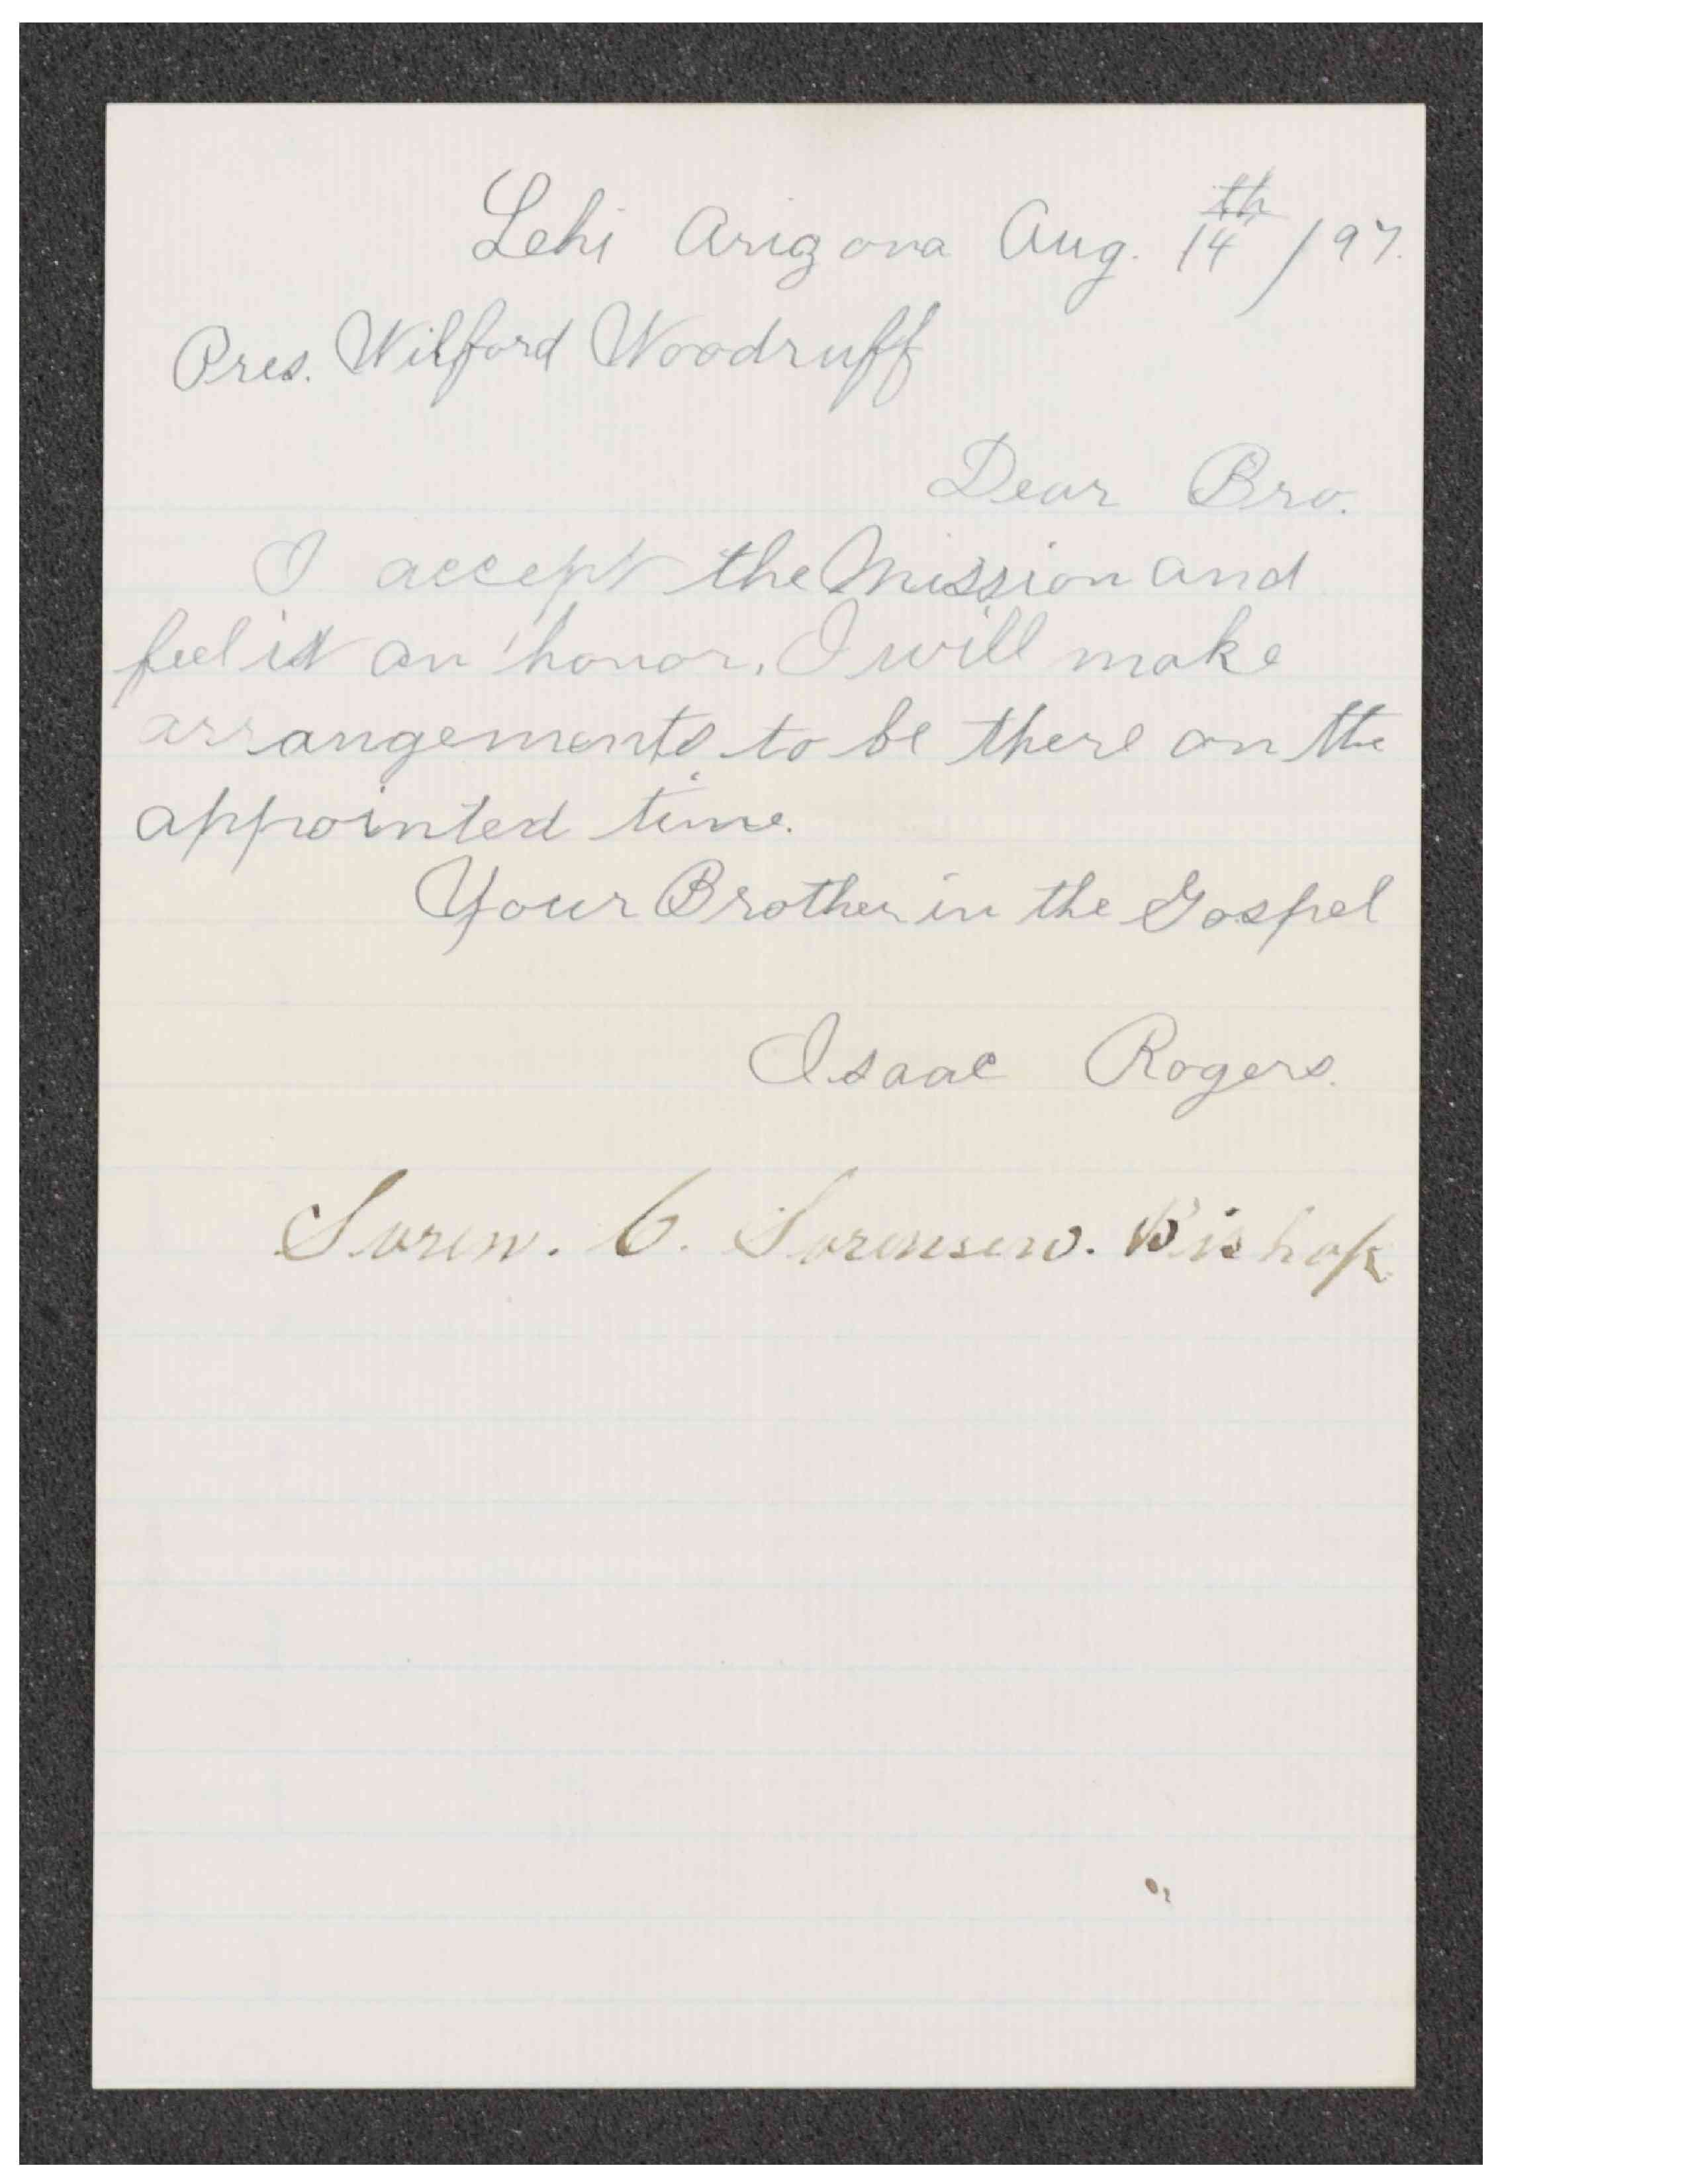 Lehi Arizona Aug. 14th /97.
Pres. Wilford Woodruff
Dear Bro.
I accept the Mission and
feel it an honor. I will make
arrangements to be there on the
appointed time.
Your Brother in the Gospel
Isaac Rogers.
Soren. C. Sorensen. Bishop